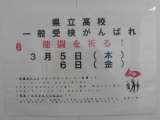 県立高校
一般受検がんばれ
健闘を祈る!
3月5日(木)
6日(金)